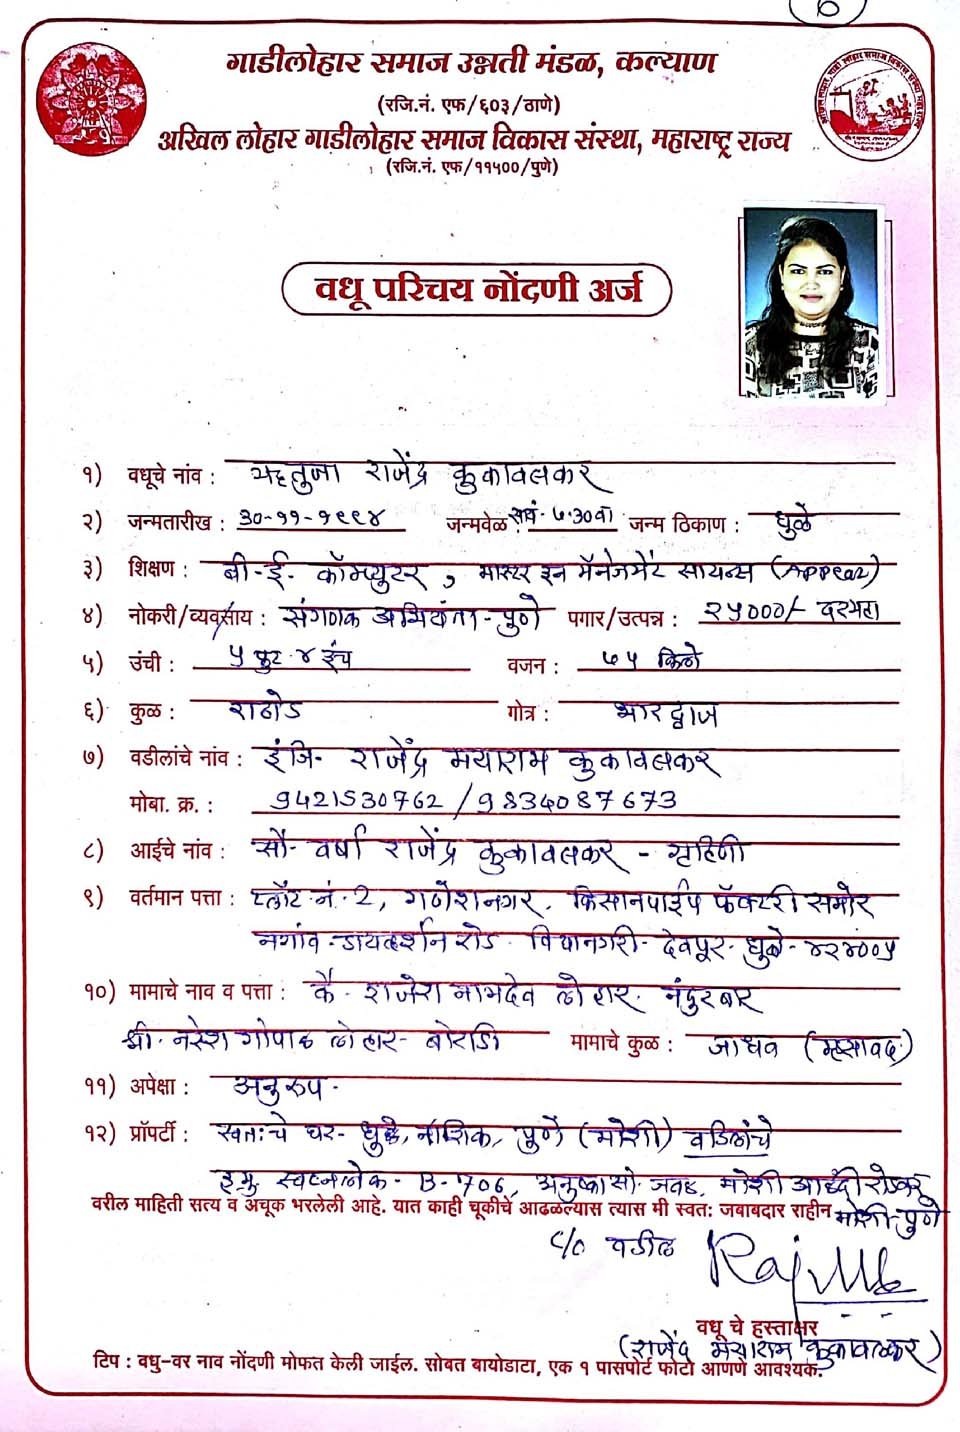 6
गाडीलोहार समाज उन्नती मंडळ, कल्याण
(रजि.नं. एफ/६०३/ठाणे)
अखिल लोहार गाडीलोहार समाज विकास संस्था, महाराष्ट्र राज्य
(रजि.नं. एफ/११५००/पुणे)
वधू परिचय नोंदणी अर्ज
१) वधूचे नांव : ऋतुजा राजेंद्र कुकावलकर
२) जन्मतारीख : ३०-११-१९९४ जन्मवेळ : सायं. ७.३०वा जन्म ठिकाण : धुळे
३) शिक्षण : बी.ई. कॉम्प्युटर, मास्टर इन मॅनेजमेंट सायन्स (Appear)
४) नोकरी/व्यवसाय : संगणक अभियंता - पुणे पगार/उत्पन्न : २५०००/- दरमहा
५) उंची : ५ फुट ४ इंच वजन : ७५ किलो
६) कुळ : राठोड गोत्र : भारद्वाज
७) वडीलांचे नांव : इंजि. राजेंद्र मयाराम कुकावलकर
मोबा. क्र. : 9421530762 / 9834087673
८) आईचे नांव : सौ. वर्षा राजेंद्र कुकावलकर - गृहिणी
९) वर्तमान पत्ता : प्लॉट नं. 2, गणेशनगर, किसान पाईप फॅक्टरी समोर
नगांव रोड विद्यानगरी - देवपूर - धुळे - ४२४००५
१०) मामाचे नाव व पत्ता : कै. राजेश नामदेव लोहार. नंदुरबार
श्री. नरेश गोपाळ लोहार - बोराडी मामाचे कुळ : जाधव (म्हसावद)
११) अपेक्षा : अनुरुप -
१२) प्रॉपर्टी : स्वतःचे घर - धुळे, नाशिक, पुणे (मोशी) वडिलांचे
स्वप्नलोक - B-706, अनुष्का सो. जवळ, मोशी आळंदी रोडवर
वरील माहिती सत्य व अचूक भरलेली आहे. यात काही चूकीचे आढळल्यास त्यास मी स्वतः जबाबदार राहीन मोशी-पुणे
c/o वडील
वधू चे हस्ताक्षर
(राजेंद्र मयाराम कुकावलकर)
टिप : वधु-वर नाव नोंदणी मोफत केली जाईल. सोबत बायोडाटा, एक १ पासपोर्ट फोटो आणणे आवश्यक.